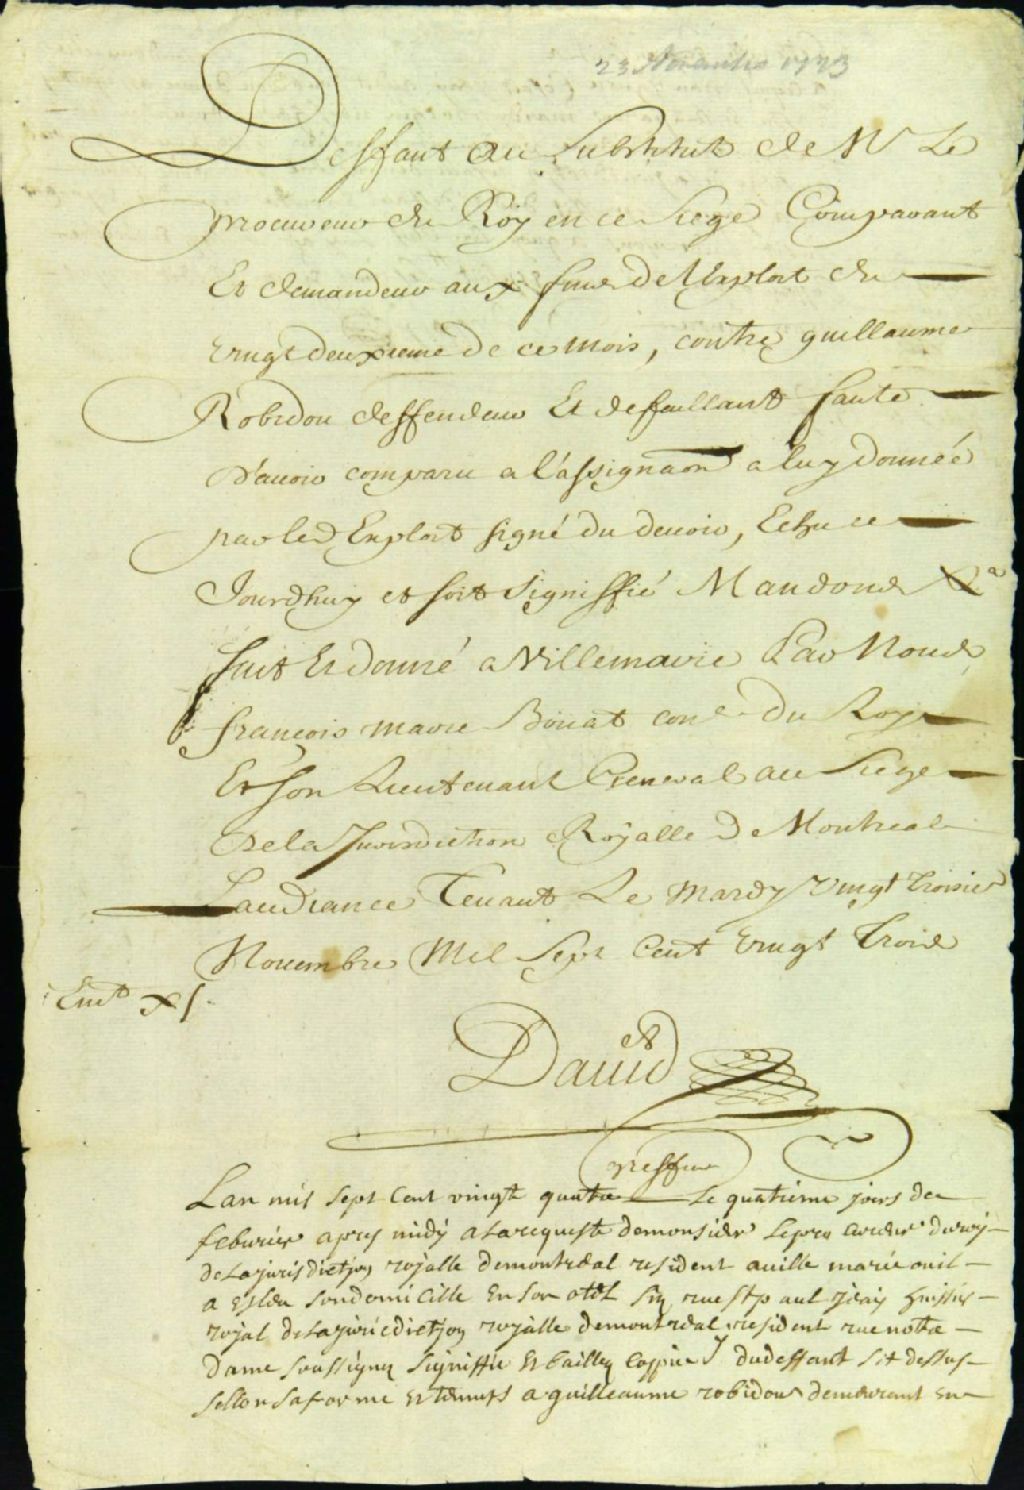 23 Novembre 1723
Deffaut au Substitut de Mr Le
procureur du Roy en ce siege Comparant
Et demandeur aux fins de l'Exploit du
vingt deuxieme de ce mois, contre guillaume
Robidou deffendeur Et defaillant faute
d'auoir comparu a l'assignaon a luy donnée
par led Exploit signé du deuoir, Echu ce
Jourdhuy et soit signiffié Mandons &a
fait Et donné a Villemarie Par Nous
françois marie Boüat coner du Roy
Et son Lieutenant General au Siege
de la Jurisdiction Royalle de Montreal
Laudiance Tenant Le mardy vingt troisie
Nouembre Mil Sept Cent vingt trois
Dauid
greffier
Lan mil sept Cent vingt quatre Le quatrieme jours de
feburier apres midy a la requeste de monsider le pro cureur du roy
de la jurisdictjon royalle de montreal resident a uille marie ouil
a Esleu son domicille En son otel siz rue st paul jeay huissier
royal de la juricdictjon royalle de montreal resident rue notre
dame soussignez signiffie Et bailley coppie du deffaut sit dessus
sellon sa forme Et tenurs a guilleaume robidou demeurant En